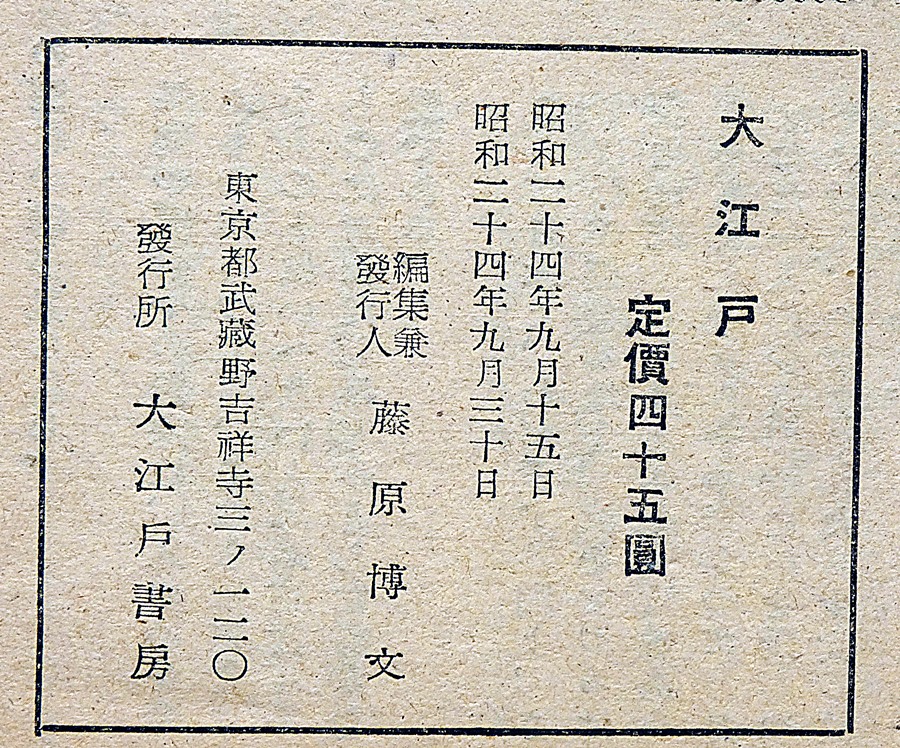 大江戸
定價四十五圓
昭和二十四年九月十五日
昭和二十四年九月三十日
編集兼
發行人
藤原博文
東京都武藏野吉祥寺三ノ一二〇
發行所 大江戸書房